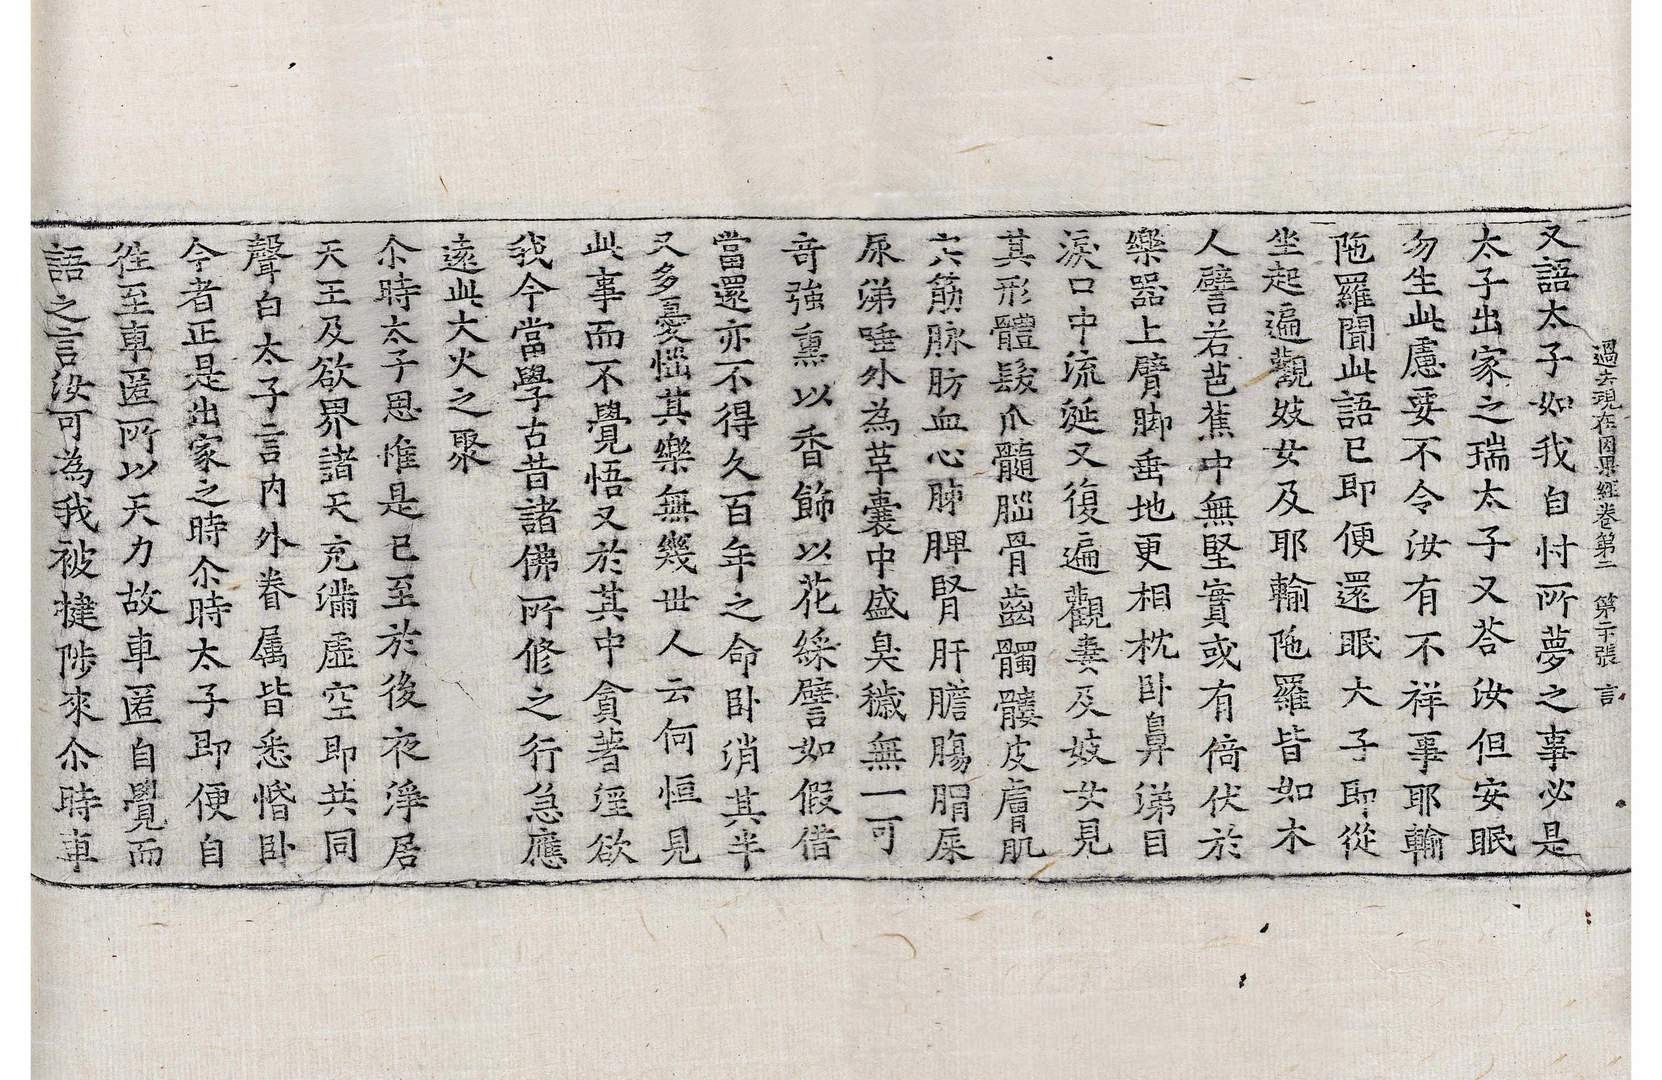 過去現在因果經卷第二　第二十張　言
又語太子如我自忖所夢之事必是
太子出家之瑞太子又荅汝但安眠
勿生此慮要不令汝有不祥事耶輸
陁羅聞此語已即便還眠太子即從
坐起遍觀妓女及耶輸陁羅皆如木
人譬若芭蕉中無堅實或有倚伏於
樂器上臂脚垂地更相枕卧鼻涕目
淚口中流涎又復遍觀妻及妓女見
其形體髮爪髓腦骨齒髑髏皮膚肌
宍筋脉肪血心肺脾腎肝膽膓胃屎
尿涕唾外為革囊中盛臭穢無一可
竒強熏以香飾以花綵譬如假借
當還亦不得久百年之命卧消其半
又多憂惱其樂無幾世人云何恒見
此事而不覺悟又於其中貪著婬欲
我今當學古昔諸佛所修之行急應
遠此大火之聚
尒時太子思惟是已至於後夜淨居
天王及欲界諸天充滿虛空即共同
聲白太子言内外眷属皆悉惛卧
今者正是出家之時尒時太子即便自
徃至車匿所以天力故車匿自覺而
語之言汝可為我被揵陟來尒時車